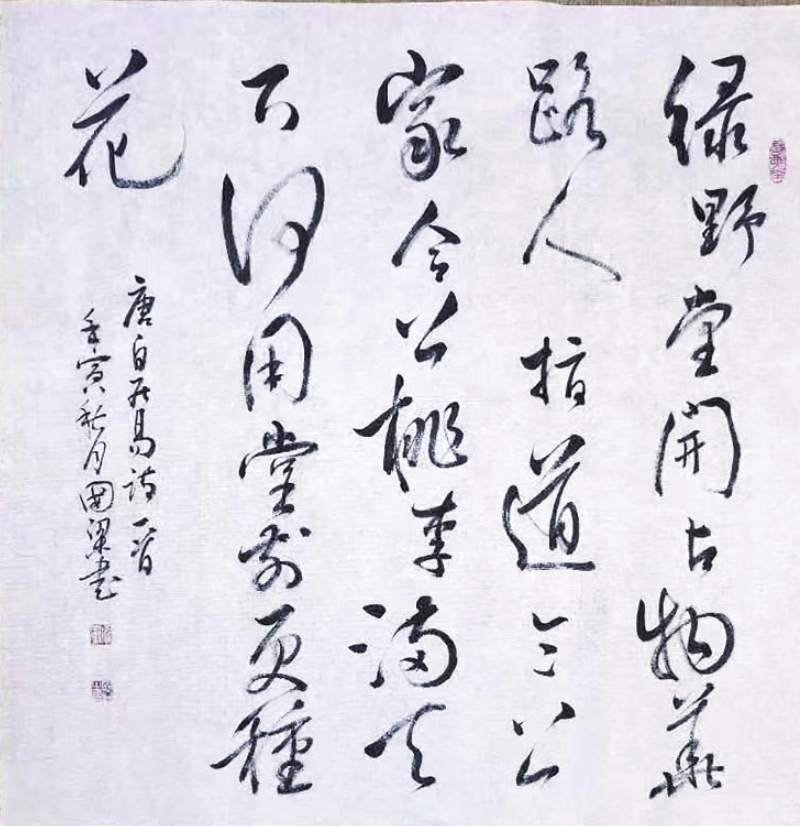 绿野堂開占物華
路人指道令公
家令公桃李满天
下何用堂前更種
花
唐白居易诗一首
壬寅秋月國梁書